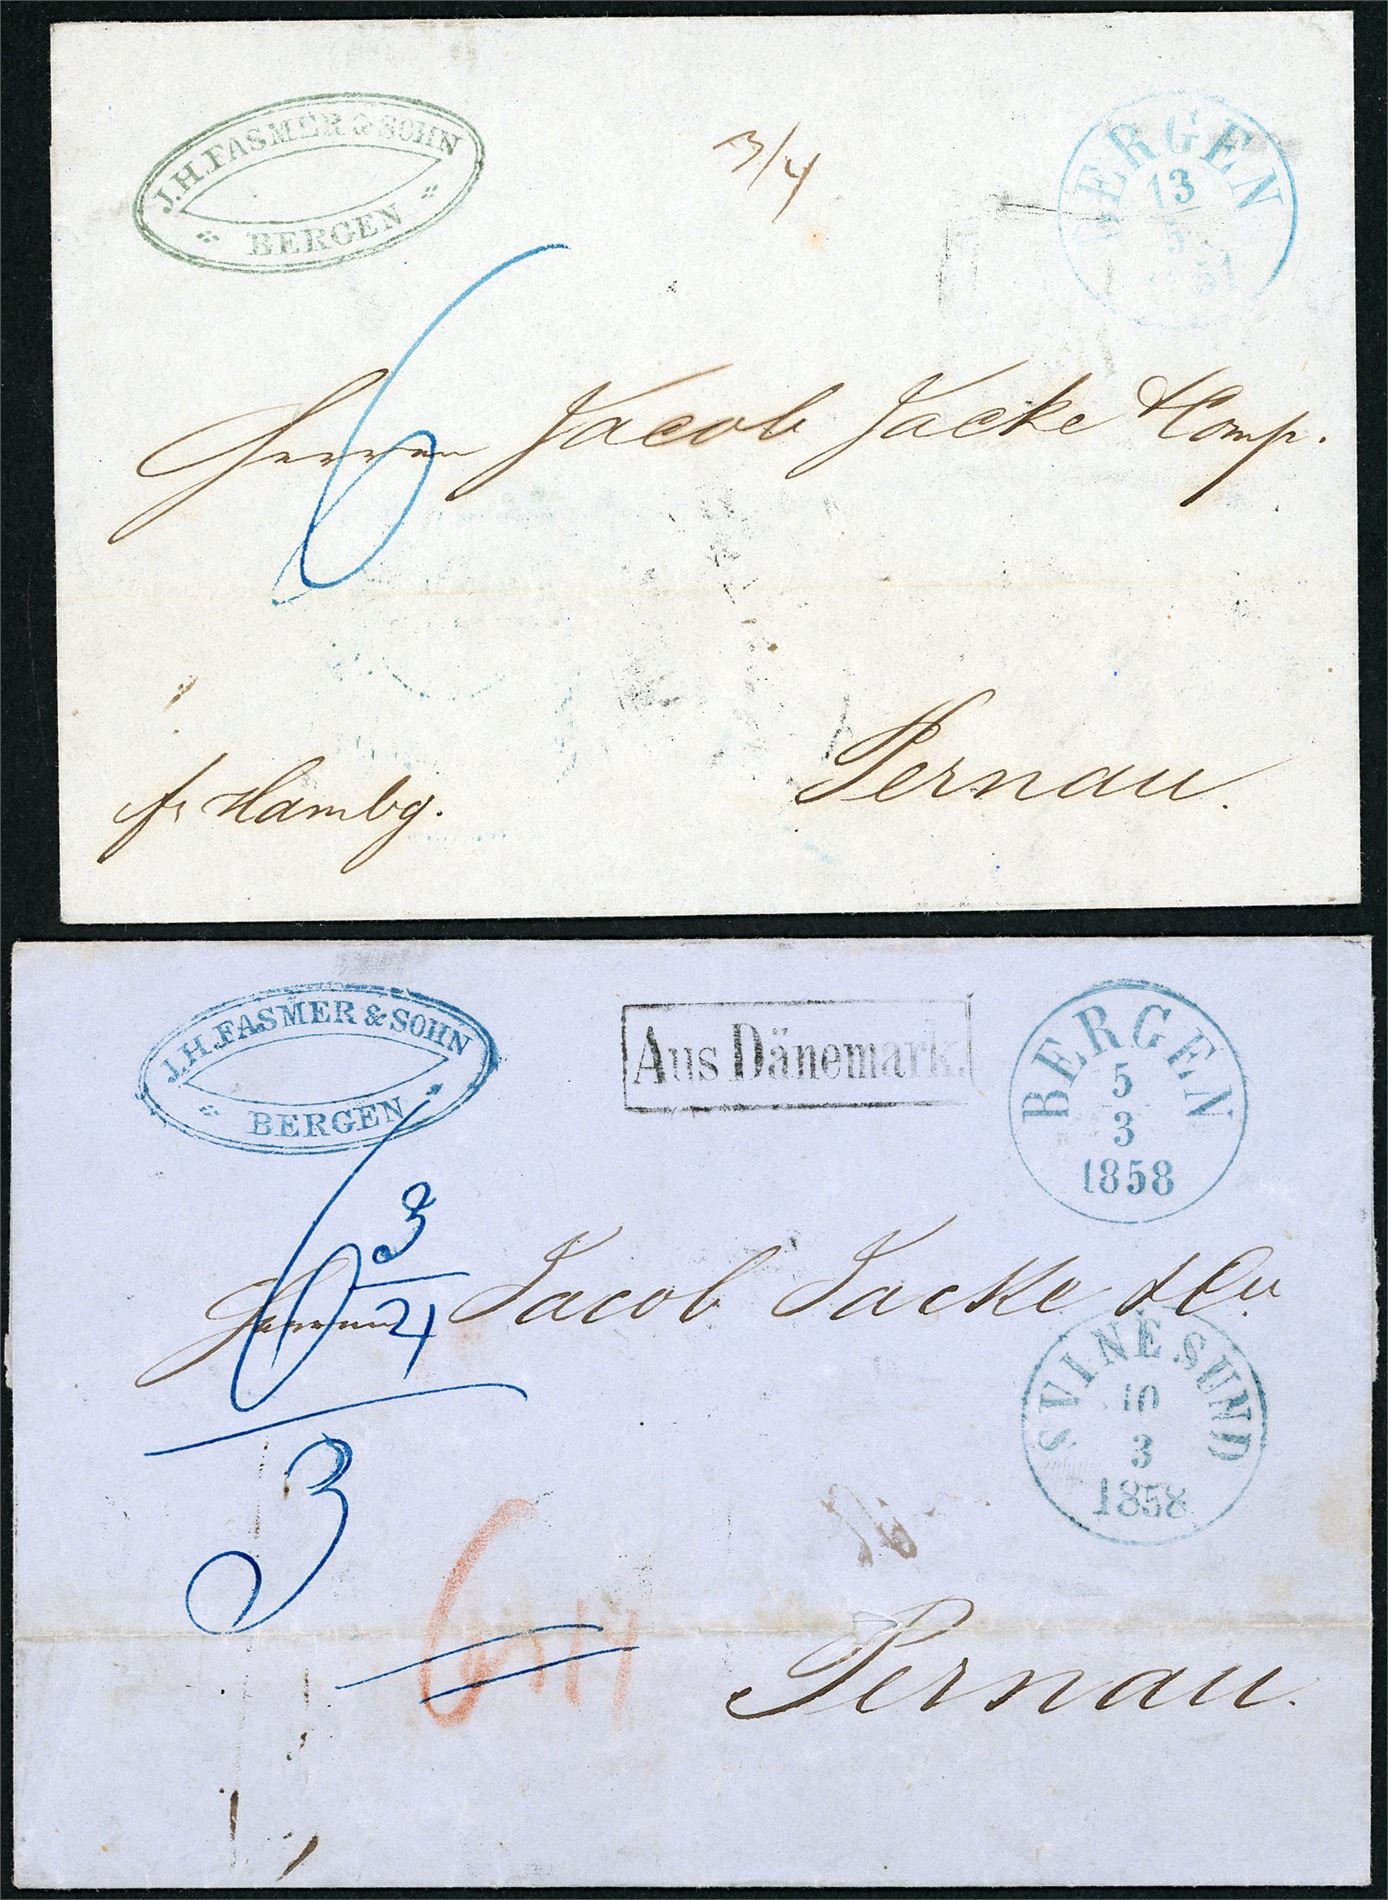 J.H.FASMER & SOHN
BERGEN
3/4
BERGEN
13
6
Herren Jacob Jacke & Comp.
Pernau.
fr Hambg.
J.H.FASMER & SOHN
BERGEN
Aus Dänemark.
BERGEN
5
3
1858
6 3/4
Herren Jacob Jacke & Co.
SVINESUND
10
3
1858
3
6
Pernau.